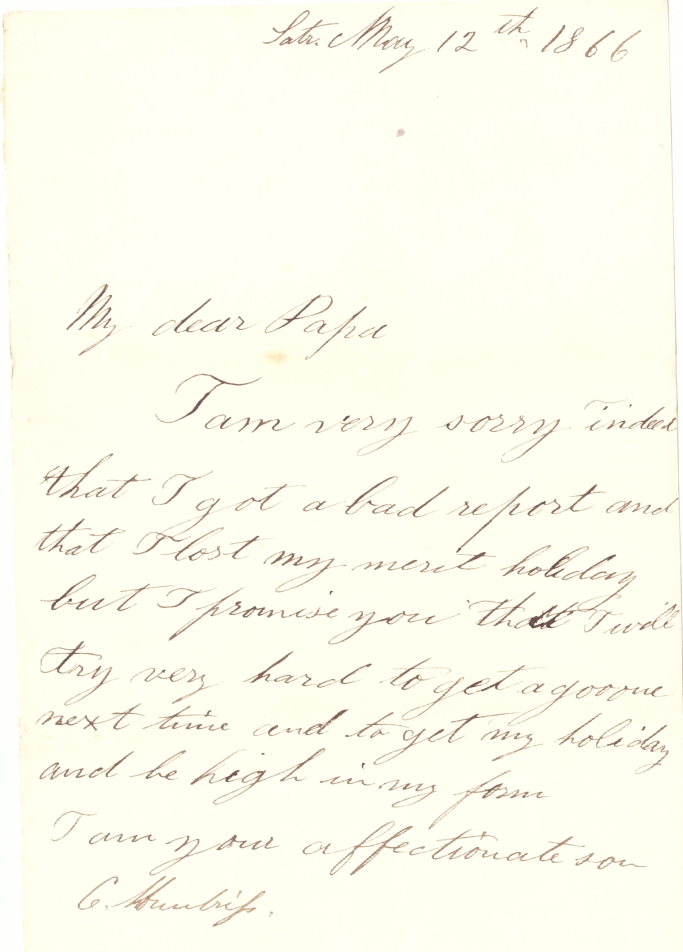 Satr. May 12th 1866
My dear Papa
I am very sorry indeed
that I got a bad report and
that I lost my merit holiday
but I promise you that I will
try very hard to get a gooone
next time and to get my holiday
and be high in my form
I am your affectionate son
C.